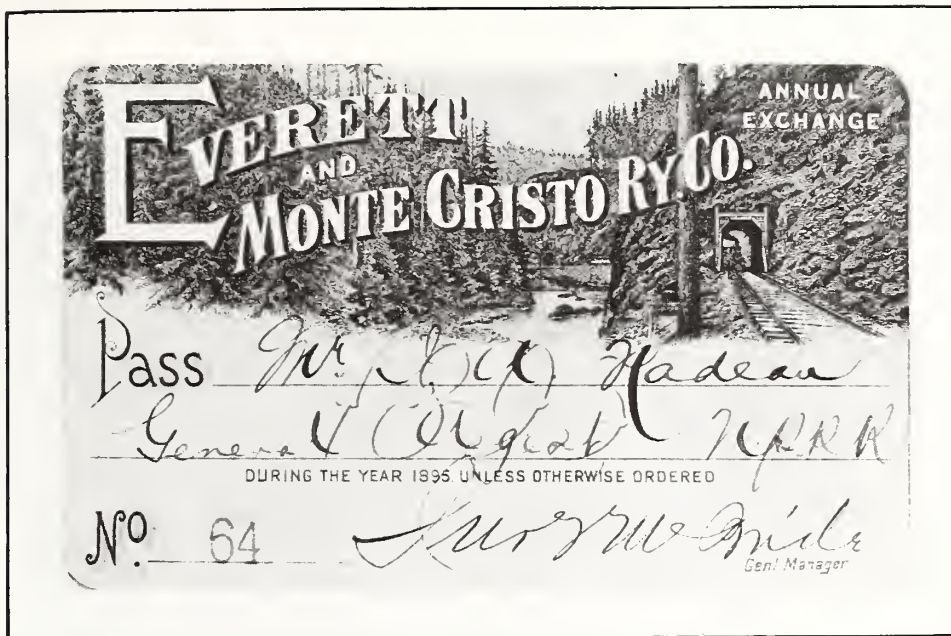 EVERETT
AND
MONTE CRISTO RY. CO.
ANNUAL
EXCHANGE
Pass Mr. Nadeau
General Agent N.P.R.R
DURING THE YEAR 1895. UNLESS OTHERWISE ORDERED
No. 64
Genl Manager